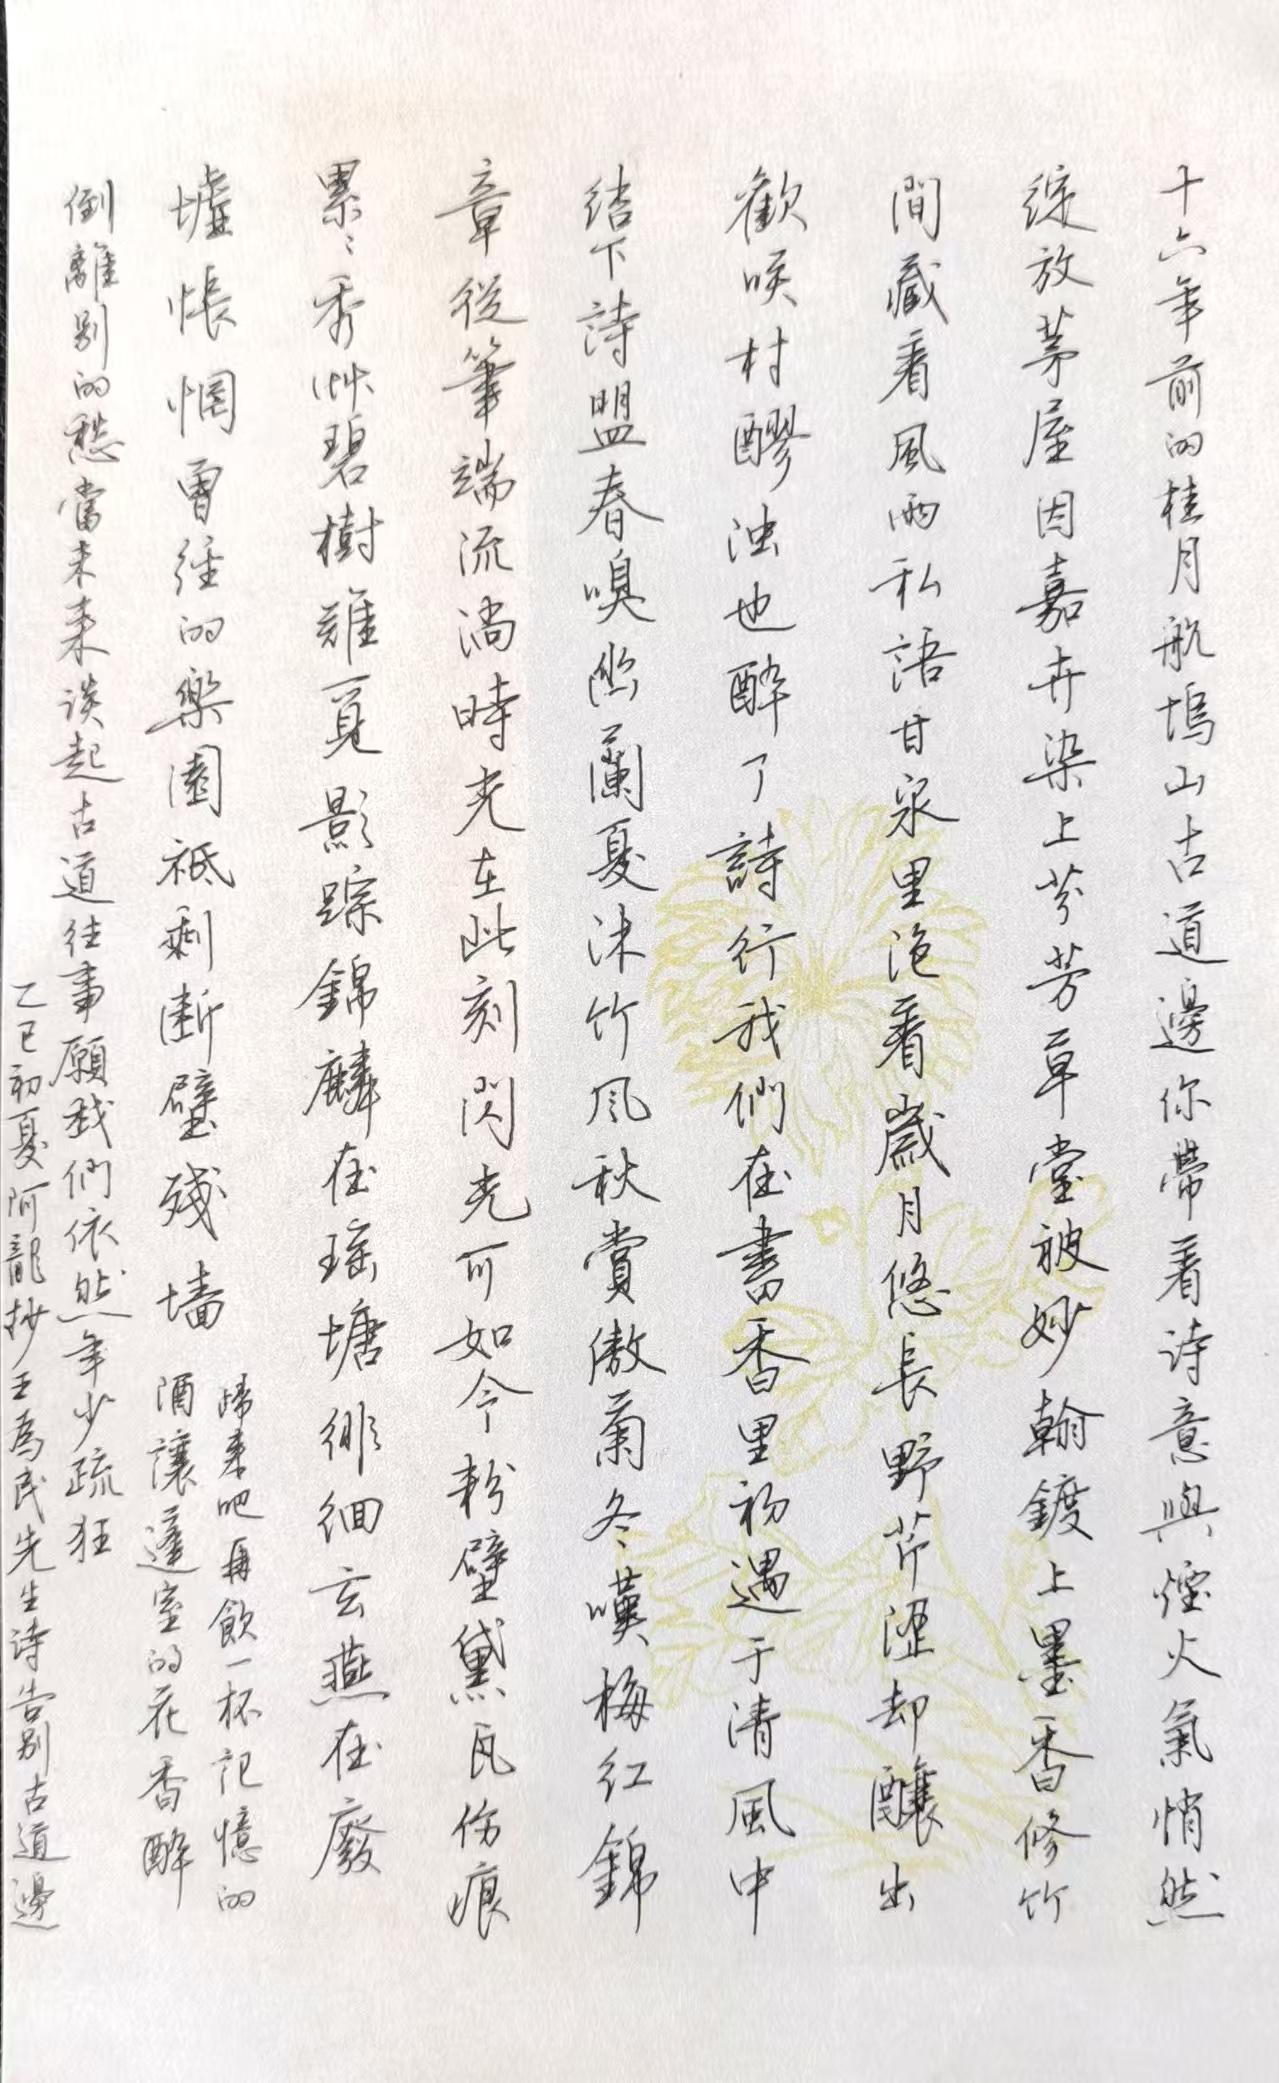 十六年前的桂月航塢山古道邊你帶着诗意與煙火氣悄然
綻放茅屋因嘉卉染上芬芳草堂被妙翰鍍上墨香修竹
間藏着風雨私語甘泉里泡着歲月悠長野芹澀却釀出
歡唉村醪浊也醉了詩行我們在書香里初遇于清風中
结下詩盟春嗅幽蘭夏沐竹风秋賞傲菊冬嘆梅红錦
章從筆端流淌時光在此刻閃光可如今粉壁黛瓦伤痕
累々秀艸碧樹難覓影踪錦麟在瑶塘徘徊玄燕在廢
墟悵惘曾經的樂園祗剩断壁殘墙
歸来吧再飲一杯記憶的
酒讓蓬室的花香醉
倒離别的愁當未来谈起古道往事願我們依然年少疏狂
乙巳初夏阿龍抄王為民先生诗告别古道邊